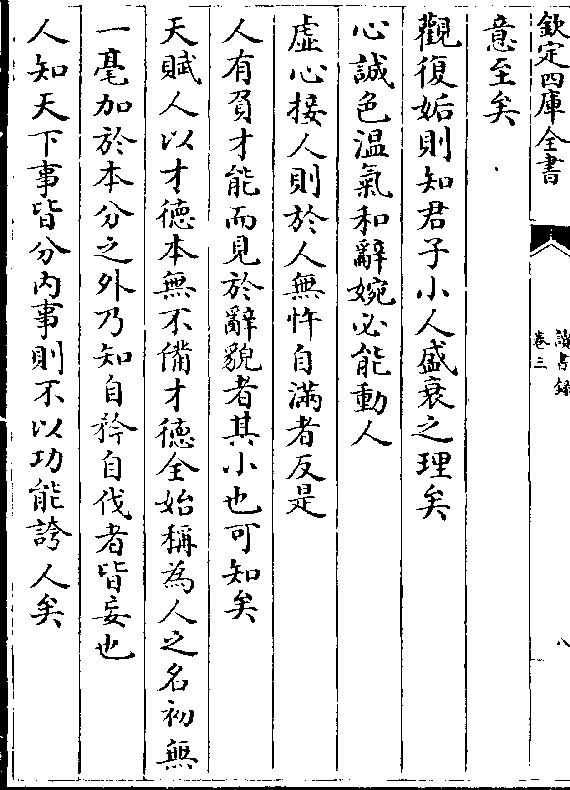 欽定四庫全書
讀書錄
卷三
八
意至矣
觀復姤則知君子小人盛衰之理矣
心誠色溫氣和辭婉必能動人
虛心接人則於人無忤自滿者反是
人有負才能而見於辭貌者其小也可知矣
天賦人以才德本無不備才德全始稱為人之名初無
一毫加於本分之外乃知自矜自伐者皆妄也
人知天下事皆分內事則不以功能誇人矣